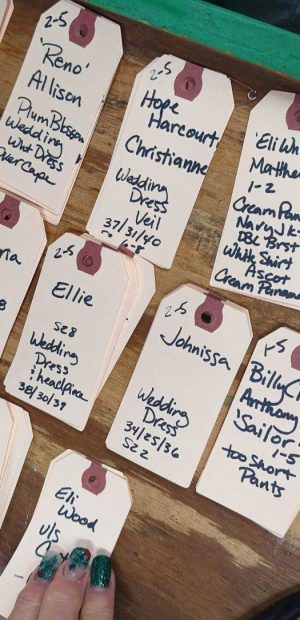 2-5
'Reno'
Allison
Plum Blossom
Wedding
Dress
over Cape
2-5
Hope
Harcourt
Christianne
Wedding
Dress
Veil
37/31/40
6-8
'Eli Wh
Matthe
1-2
Cream Pan
Navy Jk
Dbl Brst
White Shirt
Ascot
Cream Panama
na
8
2-5
Ellie
S28
Wedding
Dress
: headpiece
38/30/39
2-5
Johnissa
Wedding
Dress
34/25/36
S22
1-5
Billy C
Anthony
'Sailor
1-5
too short
Pants
Eli
Wood
u/s